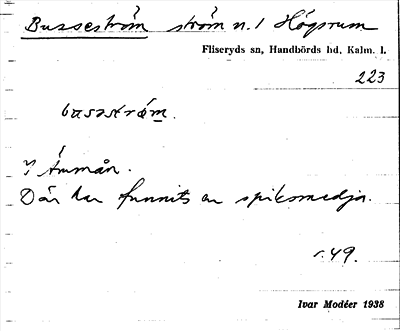 Busseström ström n. l Högsrum
Fliseryds sn, Handbörds hd. Kalm. l.
223
busəström.
I Åmmån.
Där har funnits en spiksmedja.
s. 49.
Ivar Modéer 1938